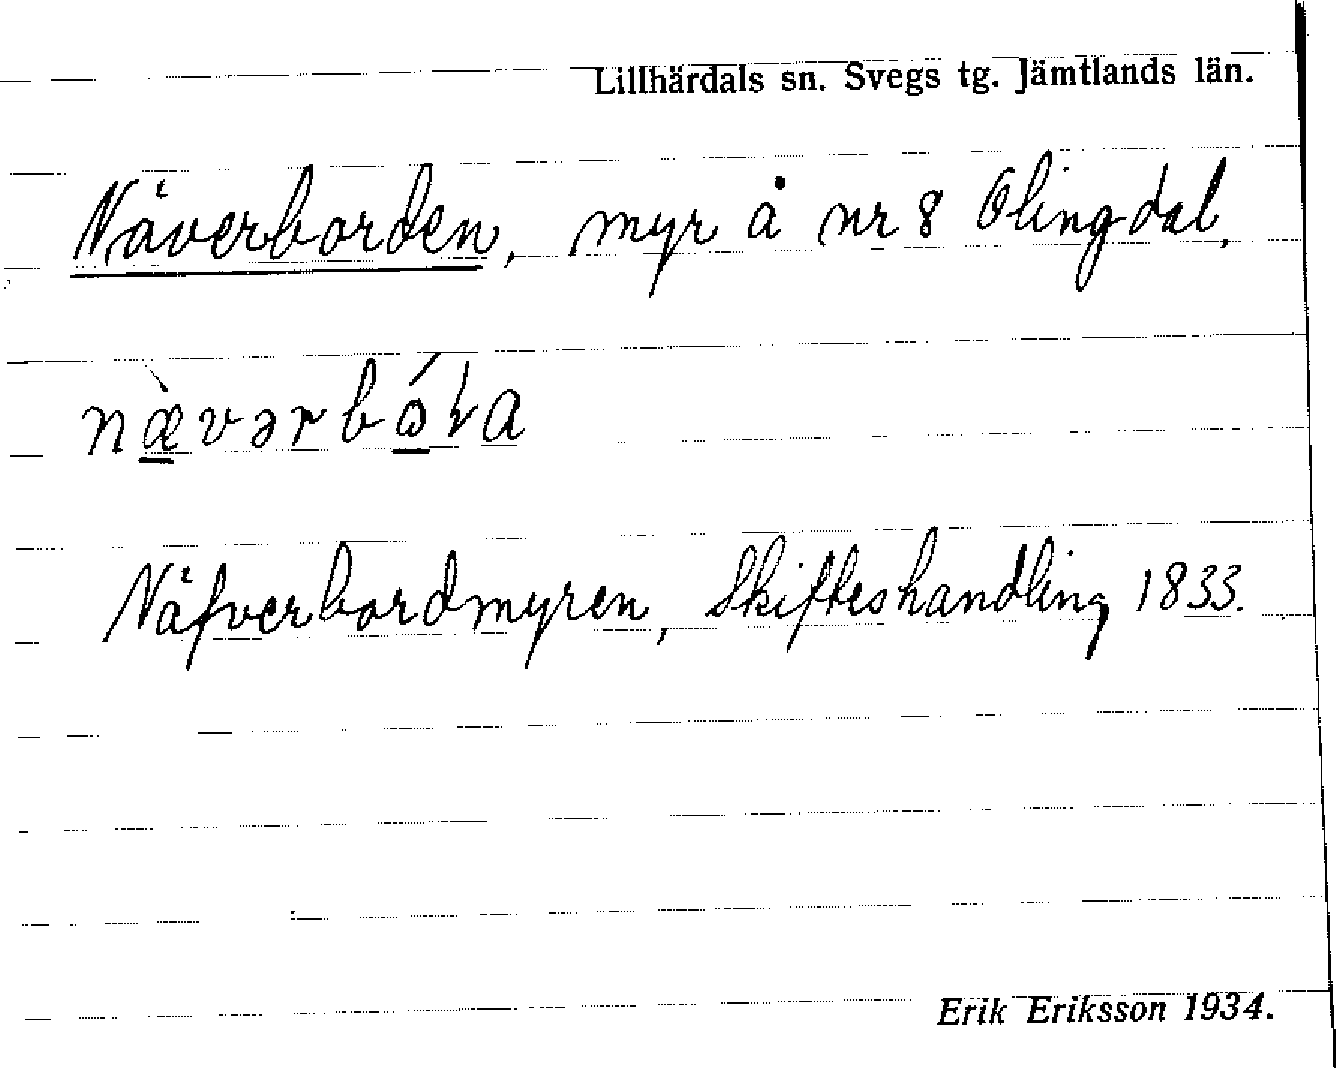 Lillhärdals sn. Svegs tg. Jämtlands län.
Näverborden, myr å nr 8 Olingdal,
Näfverbordmyren, Skifteshandling 1833.
Erik Eriksson 1934.